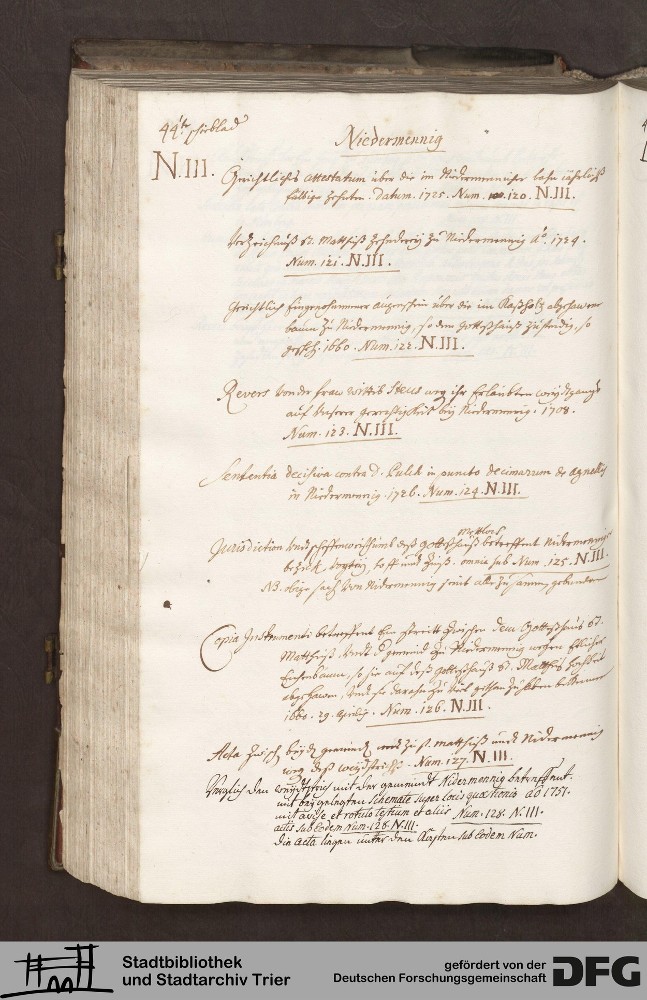 44te schieblad
Niedermennig
N.III. Gerichtliches attestatum über die im Niedermenniger lehn jährlichs
fällige Zehnten. Datum. 1725. Num. 120. N.III.
Verzeichnüß St. Matheiß Zehnderey zu Niedermennig Ao. 1724.
Num. 121. N.III.
Gerichtlich Eingenohmmener augenschein über die im abgehawene
baum zu Niedermennig, so dem Gotteßhauß zuständig, so
1660. Num. 122. N.III.
Revers von der fraw wittib ihr Erlaubten weydtgangs
auf unserer gerechtigkeit bey Niedermennig. 1708.
Num. 123. N.III.
Sententia decisiva contra D. in puncto decimarum de agnellis
in Niedermennig. 1726. Num. 124. N.III.
Jurisdiction und deß Gotteßhauß Mettloch betreffent Nidermennig
bezirk, und Zinß. omnia sub Num. 125. N.III.
NB. obige sach von Nidermennig seint alle zusamen gebunden
Copia Instrumenti betreffent Ein streitt Zwischen dem Gotteßhauß St.
Mattheiß, undt D gemeind zu Niedermennig wegen Etlicher
Eichenbaum, so sie auf deß Gotteßhauß St. Mattheis
abgehawen, und sie daran zu viel gethan zu haben bekennen
1660. 29. Aprilis. Num. 126. N.III.
Acta Zwisch. beyde gemeind zu st. mattheiß undt Nidermennig
weg. deß weydtstrichs. Num. 127. N.III.
Verglich den weydtstrich mit der gemeindt Nidermennig betreffent.
mit beygelegten Schemate super locis quaestionis aõ 1751.
mit avise et rotulo testium et aliis Num. 128. N.III.
actis sub Eodem Num. 128. N.III.
die acta ligen unter den Kürsten sub Eodem Num.
Stadtbibliothek
und Stadtarchiv Trier
gefördert von der
Deutschen Forschungsgemeinschaft
DFG